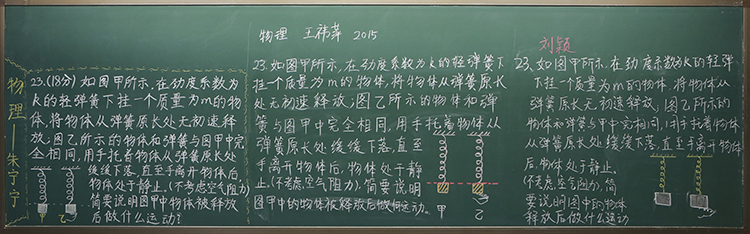 物理——朱宁宁
23.(18分)如图甲所示,在劲度系数为
k的轻弹簧下挂一个质量为m的物
体,将物体从弹簧原长处无初速释
放;图乙所示的物体和弹簧与图甲中完
全相同,用手托着物体从弹簧原长处
缓缓下落,直至手离开物体后
物体处于静止。(不考虑空气阻力)
简要说明图甲中物体被释放
后做什么运动?
甲 乙
物理 王祎萍 2015
23.如图甲所示,在劲度系数为k的轻弹簧下
挂一个质量为m的物体,将物体从弹簧原长
处无初速释放;图乙所示的物体和弹
簧与图甲中完全相同,用手托着物体从
弹簧原长处缓缓下落,直至
手离开物体后,物体处于静
止.(不考虑空气阻力).简要说明
图甲中的物体被释放后做何运动.
甲 乙
刘颖
23.如图甲所示,在劲度系数为k的轻弹
下挂一个质量为m的物体,将物体从
弹簧原长无初速释放,图乙所示的
物体和弹簧与甲中完相同,用手托着物体
从弹簧原长处缓缓下落,直至手离开物体
后,物体处于静止.
(不考虑空气阻力),简
要说明图甲中的物体
释放后做什么运动